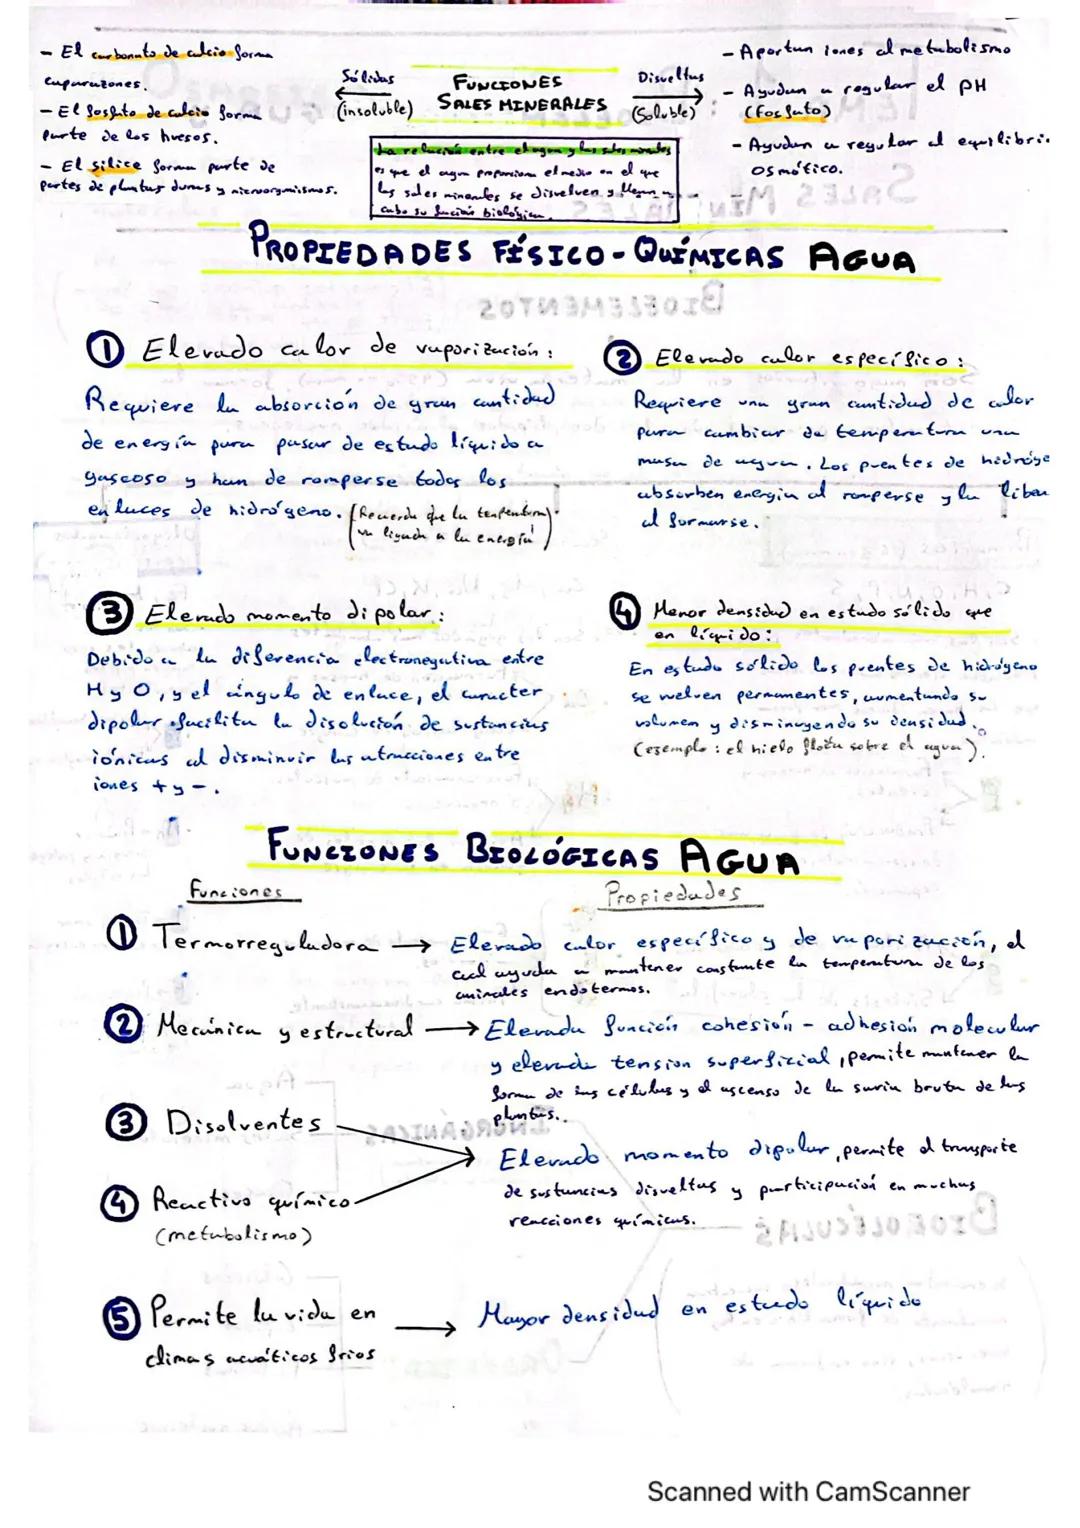 - El carbonato de calcio forma
caparazones.
- El fosfato de calcio forma
parte de los huesos.
- El silice forma parte de
partes de plantas duras y microorganismos.
Sólidas
(insoluble)
FUNCIONES
SALES MINERALES
Disueltas
(Soluble)
- Aportan iones al metabolismo
- Ayudan a regular el PH
(fosfato)
- Ayudan a regular el equilibri
osmótico.
La relación entre el agua y las sales minerales
es que el agua proporciona el medio en el que
las sales minerales se disuelven y llevan a
cabo su función biológica.
PROPIEDADES FÍSICO-QUÍMICAS AGUA
① Elevado calor de vaporización:
Requiere la absorción de gran cantidad
de energía para pasar de estado líquido a
gaseoso y han de romperse todos los
enlaces de hidrógeno. (Recuerda que la temperatura
va ligada a la energía)
② Elevado calor específico:
Requiere una gran cantidad de calor
para cambiar de temperatura una
masa de agua. Los puentes de hidróge
absorben energía al romperse y la liber
al formarse.
③ Elevado momento dipolar:
Debido a la diferencia electronegativa entre
H y O, y el ángulo de enlace, el caracter
dipolar facilita la disolución de sustancias
iónicas al disminuir las atracciones entre
iones + y -.
④ Menor densidad en estado sólido que
en líquido:
En estado sólido los puentes de hidrógeno
se vuelven permanentes, aumentando su
volumen y disminuyendo su densidad.
(ejemplo: el hielo flota sobre el agua).
FUNCIONES BIOLÓGICAS AGUA
Funciones
Propiedades
① Termorreguladora → Elevado calor específico y de vaporización, el
cual ayuda a mantener constante la temperatura de los
animales endotermos.
② Mecánica y estructural → Elevada función cohesión - adhesión molecular
y elevada tension superficial, permite mantener la
forma de las células y el ascenso de la savia bruta de las
plantas.
③ Disolventes
④ Reactivo químico
(metabolismo)
Elevado momento dipolar, permite el transporte
de sustancias disueltas y participación en muchas
reacciones químicas.
⑤ Permite la vida en
climas acuáticos fríos
→ Mayor densidad en estado líquido
Scanned with CamScanner